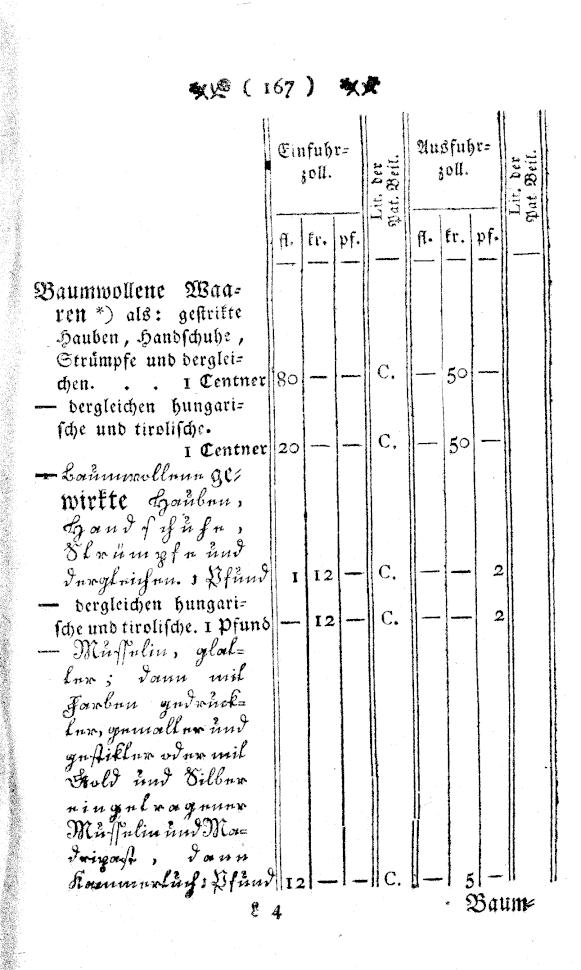 ( 167 )
Einfuhr= zoll. Lit. der Pat. Beil. Ausfuhr= zoll. Lit. der Pat. Beil.
fl. kr. pf. fl. kr. pf.
— — — — — — — —
Baumwollene Waa=
ren *) als: gestrikte
Hauben, Handschuhe,
Strümpfe und derglei=
chen. . . 1 Centner 80 — — C. — 50 —
— dergleichen hungari=
sche und tirolische.
1 Centner 20 — — C. — 50 —
— Baumwollene ge=
wirkte Hauben,
Handschuhe,
Strümpfe und
dergleichen. 1 Pfund 1 12 — C. — — 2
— dergleichen hungari=
sche und tirolische. 1 Pfund — 12 — C. — — 2
— Musselin, glat=
ter; dann mit
Farben gedruck=
ter, gemalter und
gestikter oder mit
Gold und Silber
eingetragener
Musselin und Ma=
dripast, dann
Kammertuch 1 Pfund 12 — — C. — 5 —
L 4 Baum=